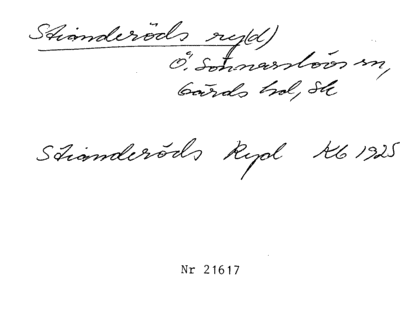 Stianderöds ry(d)
Ö. Sönnarslövs sn,
Gärds hd, Sk
Stianderöds Ryd Kb 1925
Nr 21617